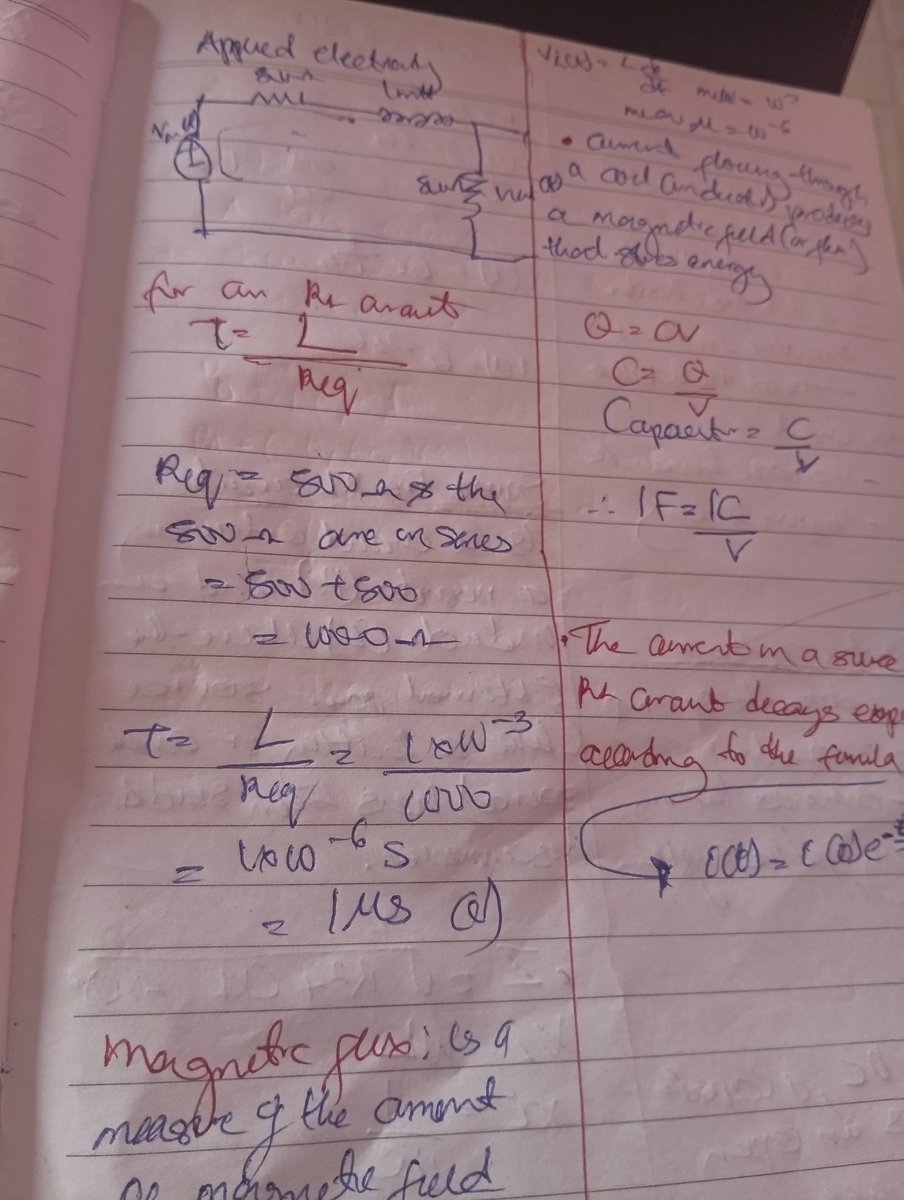 Applied electricity
500Ω
1mH
500Ω
for an RL circuit
τ = L
Req
Req = 500Ω & the
500Ω are in series
= 500 + 500
= 1000Ω
τ = L = 1x10⁻³
Req 1000
= 1x10⁻⁶ S
= 1μs
magnetic flux: is a
measure of the amount
magnetic field
micro μ = 10⁻⁶
• Current flowing through
a coil (inductor) produces
a magnetic field (or flux)
that stores energy
Q = CV
C = Q
V
= C
V
∴ 1F = 1C
V
• The current in a
RL circuit decays
according to the formula
i(t) = i(0)e